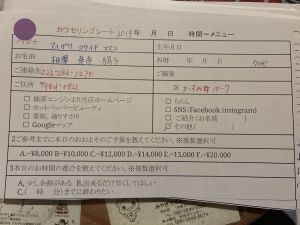 カウンセリングシート 2019年 月 日 時間〜メニュー
フリガナ
生年月日
お名前
西暦 年 月 日
ご連絡先 022-286-1270
ご職業
ご住所
□ 検索エンジンより当店ホームページ
□ ホットペッパービューティ
□ 看板、通りすがり
□ Googleマップ
□ ちらし
□ SNS（Facebook.instagram）
□ ご紹介（お名前 ）
その他（ ）
2ご参考までに本日のおおよそのご予算を教えてください。※複数選択可
A.~¥8,000 B~¥10,000 C.~¥12,000 D.~¥14,000 E.~15,000 F.~¥20,000
3本日のお時間の都合を教えてください。※複数選択可
A, 少し余裕がある B,出来るだけ早くしてほしい
C,（ 時 分）までに終わりたい